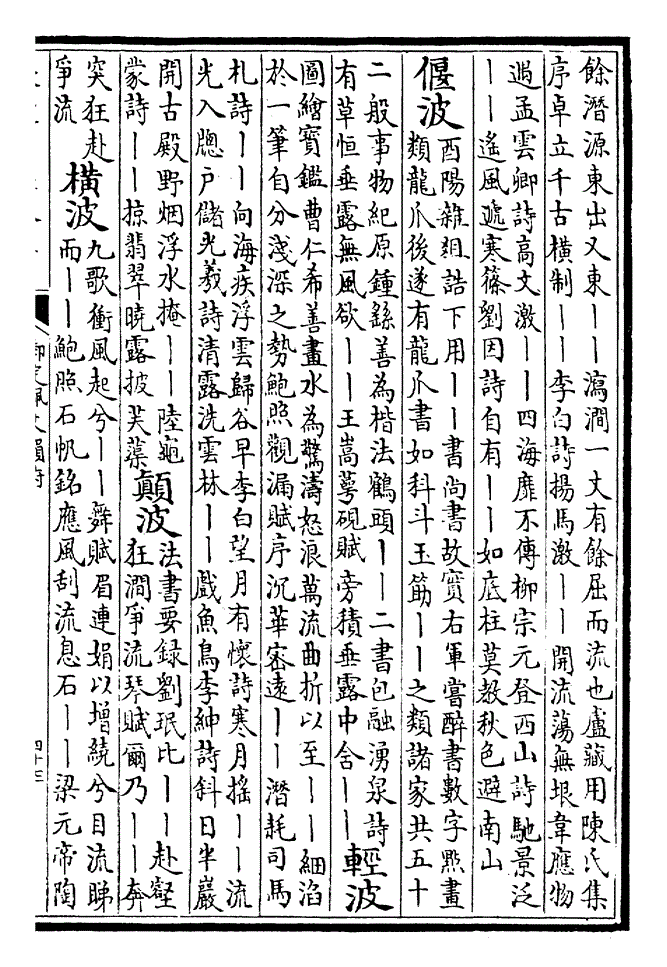 餘潛源東出又東丨丨瀉澗一丈有餘屈而流也盧藏用陳氏集
序卓立千古橫制丨丨李白詩揚馬激丨丨開流蕩無垠韋應物
過孟雲卿詩高文激丨丨四海靡不傳柳宗元登西山詩馳景泛
丨丨遙風遞寒篠劉因詩自有丨丨如底柱莫教秋色避南山
偃波
酉陽雜俎詰下用丨丨書尚書故實右軍嘗醉書數字點畫
類龍爪後遂有龍爪書如科斗玉筯丨丨之類諸家共五十
二般事物紀原鍾繇善為楷法鶴頭丨丨二書包融湧泉詩
有草恒垂露無風欲丨丨王嵩萼硯賦旁積垂露中含丨丨
輕波
圖繪寶鑑曹仁希善畫水為驚濤怒浪萬流曲折以至丨丨細淊
於一筆自分淺深之勢鮑照觀漏賦序沉華密遠丨丨潛耗司馬
札詩丨丨向海疾浮雲歸谷早李白望月有懷詩寒月搖丨丨流
光入牕戶儲光羲詩清露洗雲林丨丨戲魚鳥李紳詩斜日半巖
開古殿野烟浮水掩丨丨陸龜
蒙詩丨丨掠翡翠曉露披芙蕖
顛波
法書要録劉珉比丨丨赴壑
狂澗爭流琴賦爾乃丨丨奔
突狂赴
爭流
橫波
九歌衝風起兮丨丨舞賦眉連娟以增繞兮目流睇
而丨丨鮑照石帆銘應風刮流息石丨丨梁元帝陶
四十三